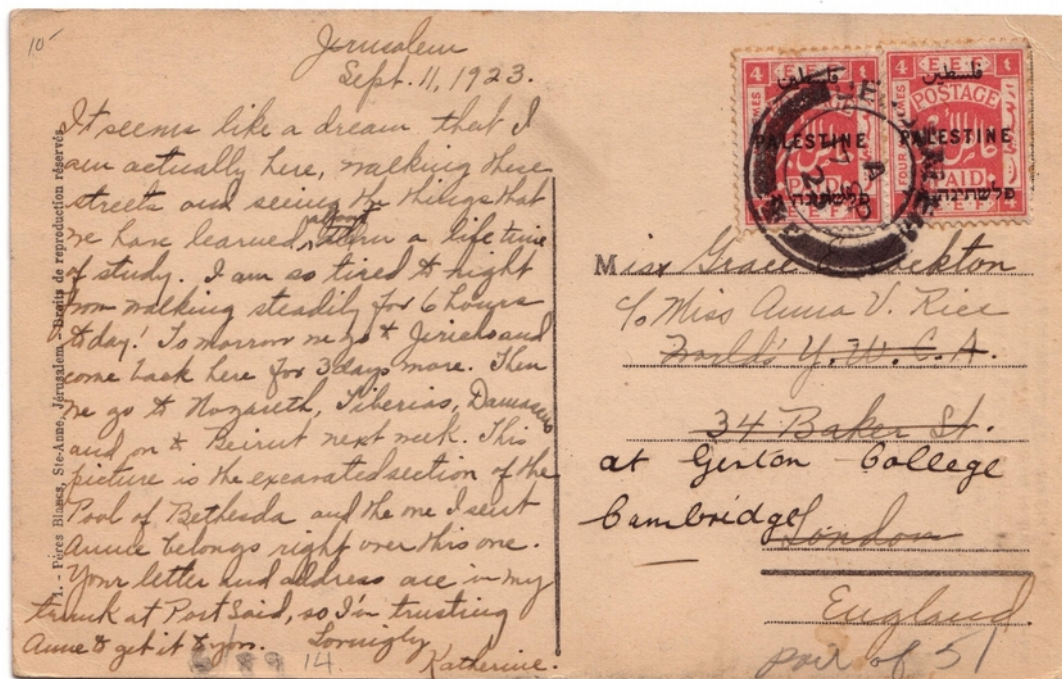 10-
Jerusalem
Sept. 11, 1923.
It seems like a dream that I
am actually here, walking these
streets and seeing the things that
we have learned about thru a life time
of study. I am so tired to night
from walking steadily for 6 hours
today! Tomorrow we go to Jericho and
come back here for 3 days more. Then
we go to Nazareth, Tiberias, Damascus
and on to Beirut next week. This
picture is the excavated section of the
Pool of Bethesda and the one I sent
Anne belongs right over this one.
Your letter and address are in my
trunk at Port Said, so I'm trusting
Anne to get it to you. Lovingly
Katherine.
1. - Pères Blancs, Ste-Anne, Jérusalem. - Droits de reproduction réservés.
4 E.E.F.
فلسطين
POSTAGE
PALESTINE
PAID
פלשתינה
E.E.F.
4 E.E.F.
فلسطين
POSTAGE
PALESTINE
FOUR
PAID
פלשתינה
E.E.F. 4
Miss Grace
c/o Miss Anna V. Rice
World's Y.W.C.A.
34 Baker St.
at Gerton College
Cambridge
London
England
pair of 5
14.